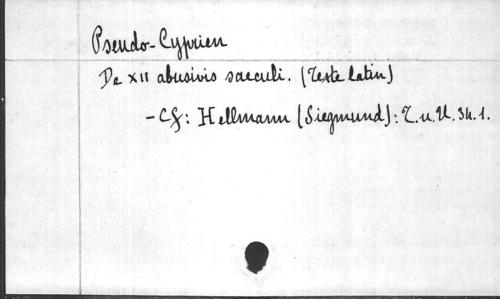 Pseudo-Cyprien
De XII abusivis saeculi. (Texte latin)
- Cf: Hellmann (Siegmund): T.u.U. 34.1.